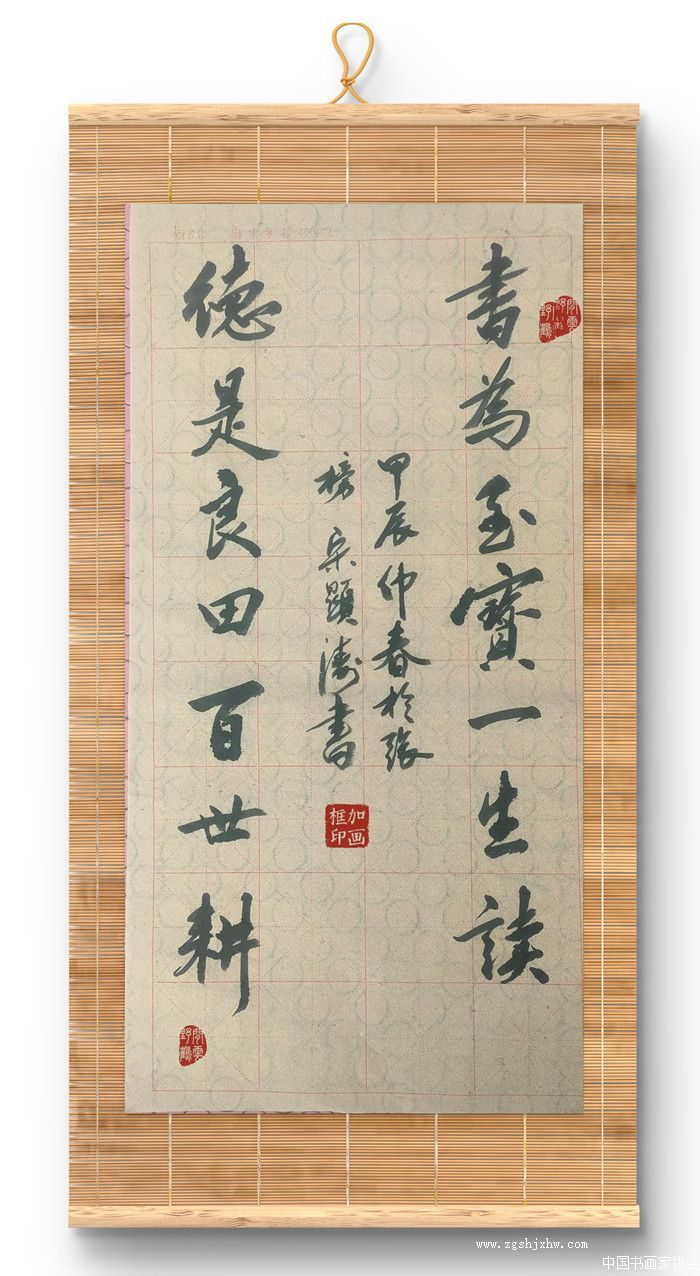 書為至寶一生读
甲辰仲春於張
榜宋顯濤書
加画
框印
德是良田百世耕
閒雲
野鶴
www.zgshjxhw.com
中国书画家协会